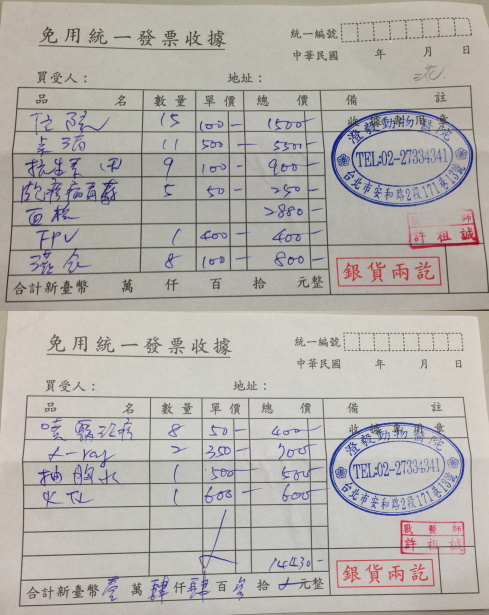 免用統一發票收據
統一編號
中華民國 年 月 日
買受人： 地址：
品名 數量 單價 總價 備註
住院 15 100- 1500-
點滴 11 500- 5500-
抗生素 9 100- 900-
皰疹病毒 5 50- 250-
2880-
FPV 1 400- 400-
灌食 8 100- 800-
收據專用章
澄毅動物醫院
TEL:02-27334341
台北市安和路2段171巷13號
師
許祖誠
銀貨兩訖
合計新臺幣 萬 仟 百 拾 元整
免用統一發票收據
統一編號
中華民國 年 月 日
買受人： 地址：
品名 數量 單價 總價 備註
噴霧治療 8 50- 400-
X-ray 2 350- 700-
抽胸水 1 500- 500-
火化 1 600- 600-
14430-
收據專用章
澄毅動物醫院
TEL:02-27334341
台北市安和路2段171巷13號
獸醫師
許祖誠
銀貨兩訖
合計新臺幣 壹 萬 肆 仟 肆 百 參 拾 元整